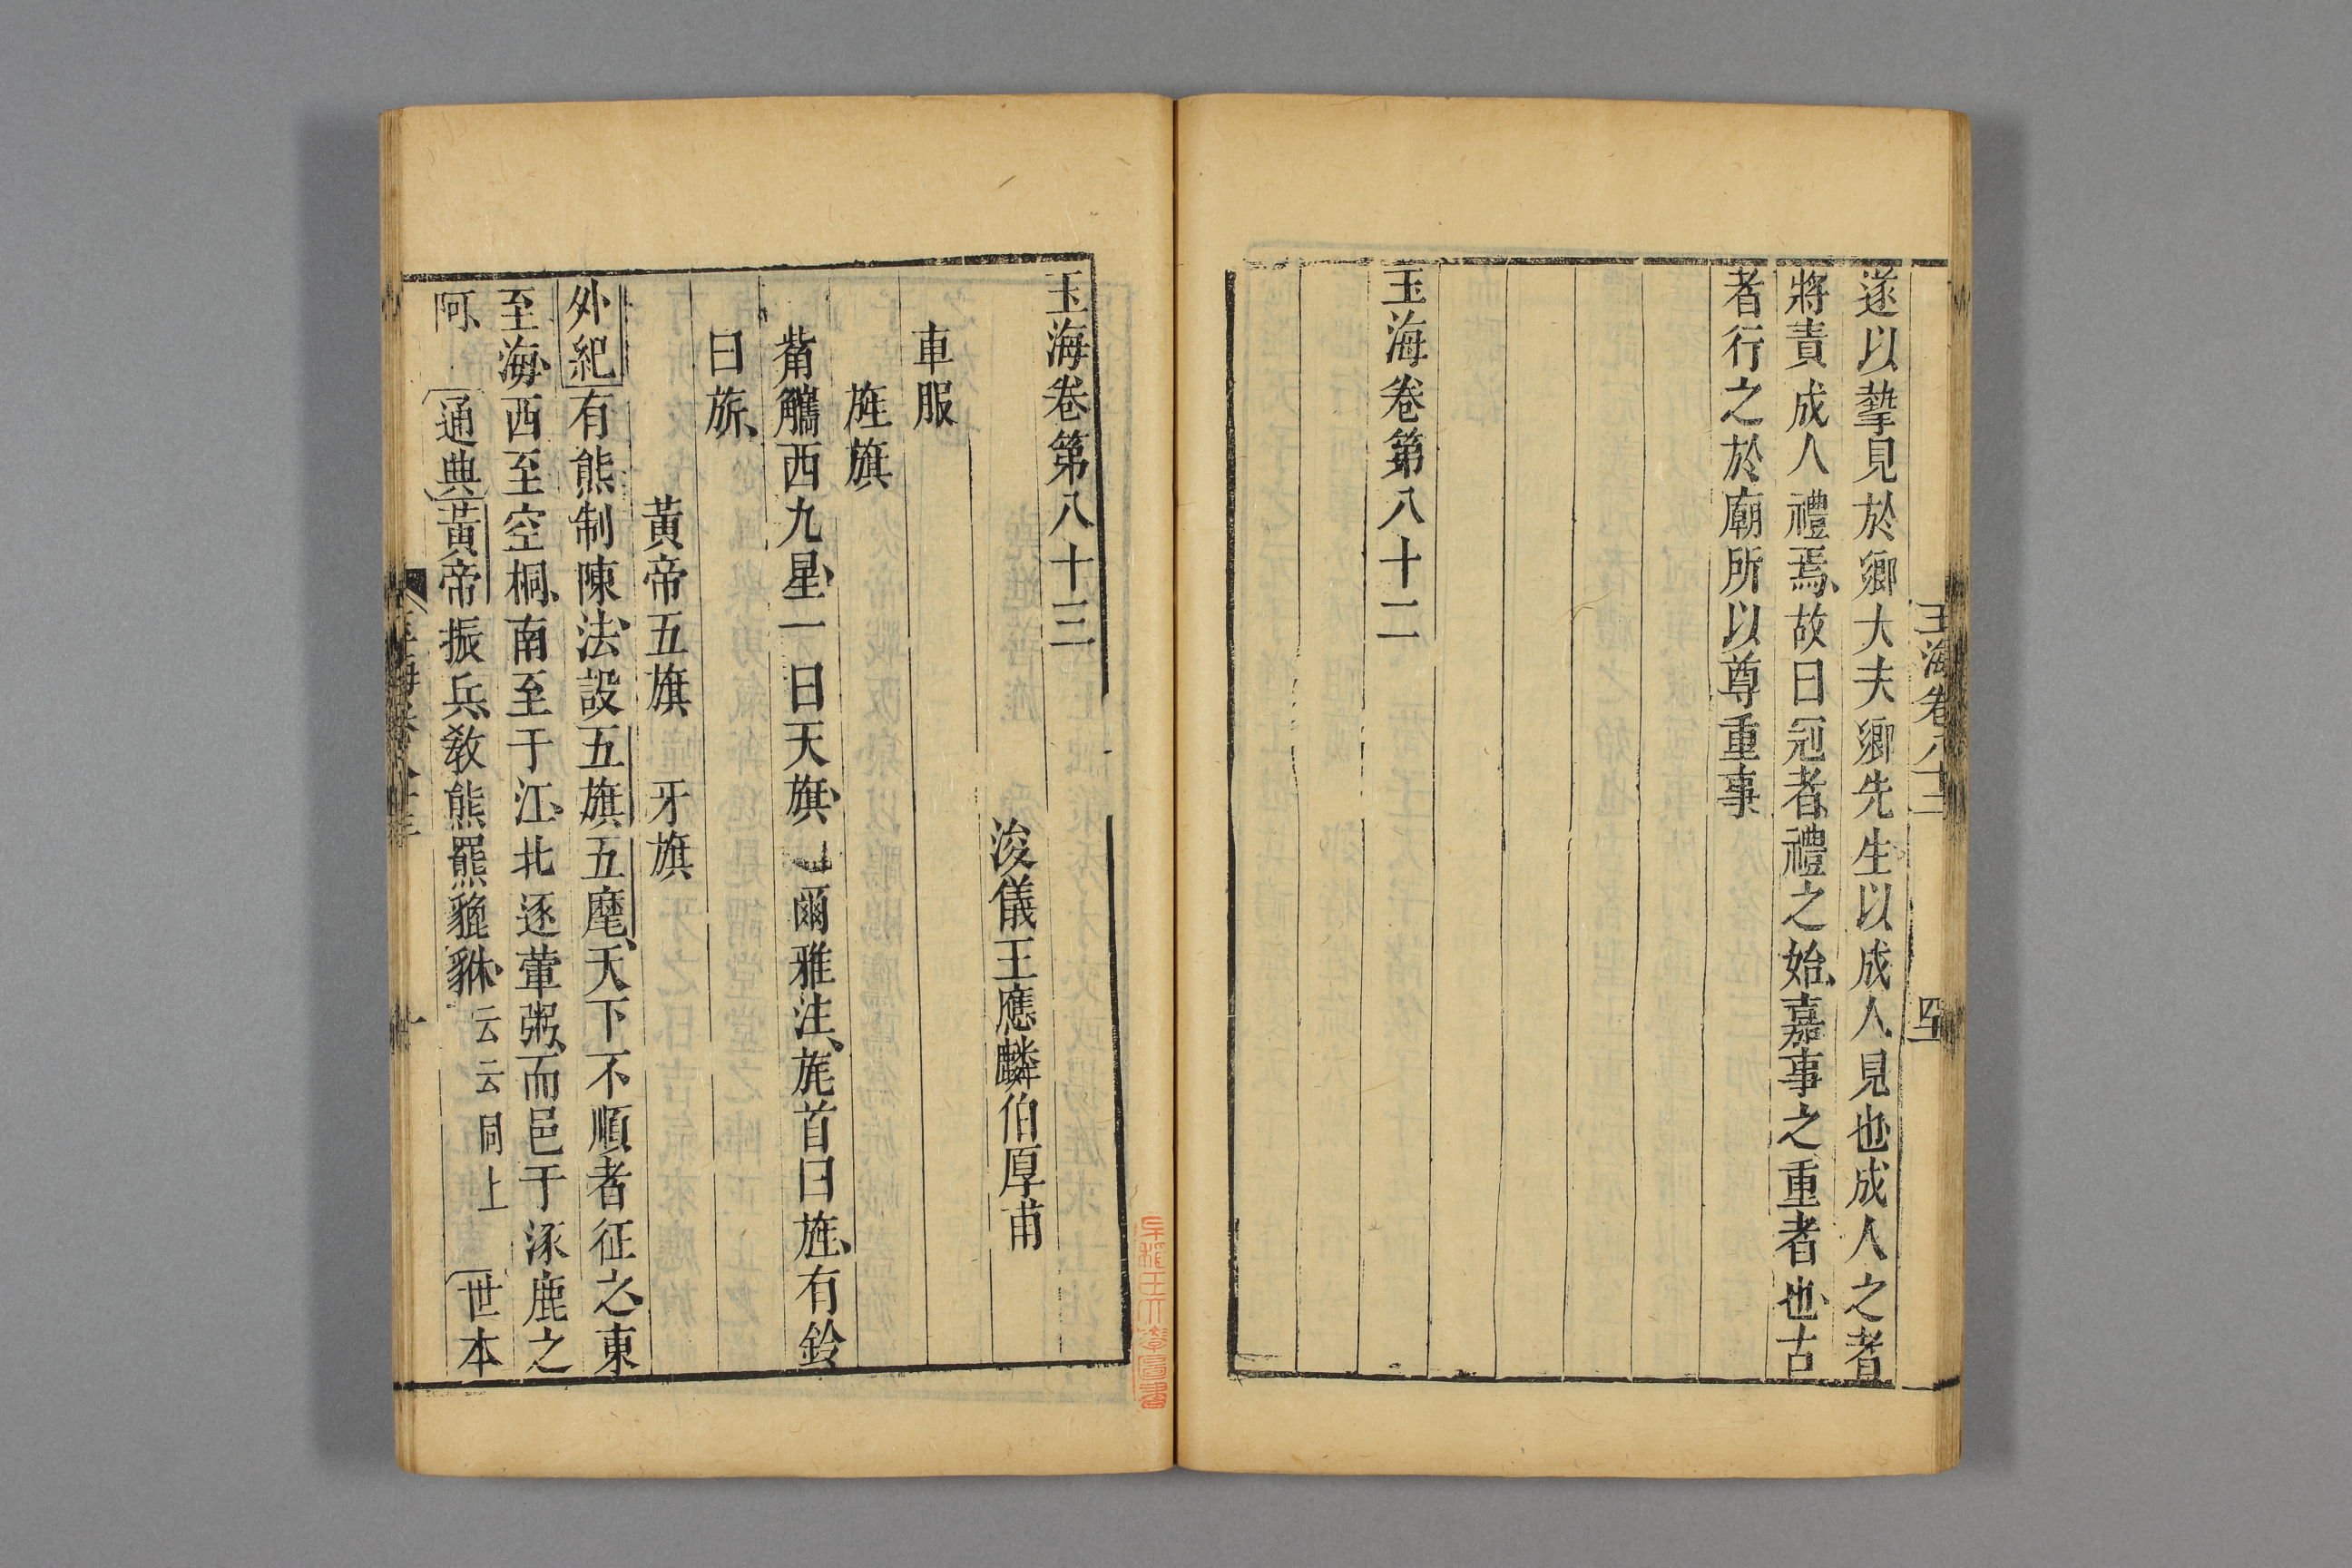 遂以摯見於鄉大夫鄉先生以成人見也成人之者
將責成人禮焉故曰冠者禮之始嘉事之重者也古
者行之於廟所以尊重事
玉海卷第八十二
玉海卷第八十三
浚儀王應麟伯厚甫
車服
旌旗
觜觿西九星一曰天旗 爾雅注旄首曰旌有鈴
曰旂
黃帝五旗 牙旗
外紀有熊制陳法設五旗五麾天下不順者征之東
至海西至空桐南至于江北逐葷粥而邑于涿鹿之
阿 通典黃帝振兵敎熊羆貔貅云云同上 世本